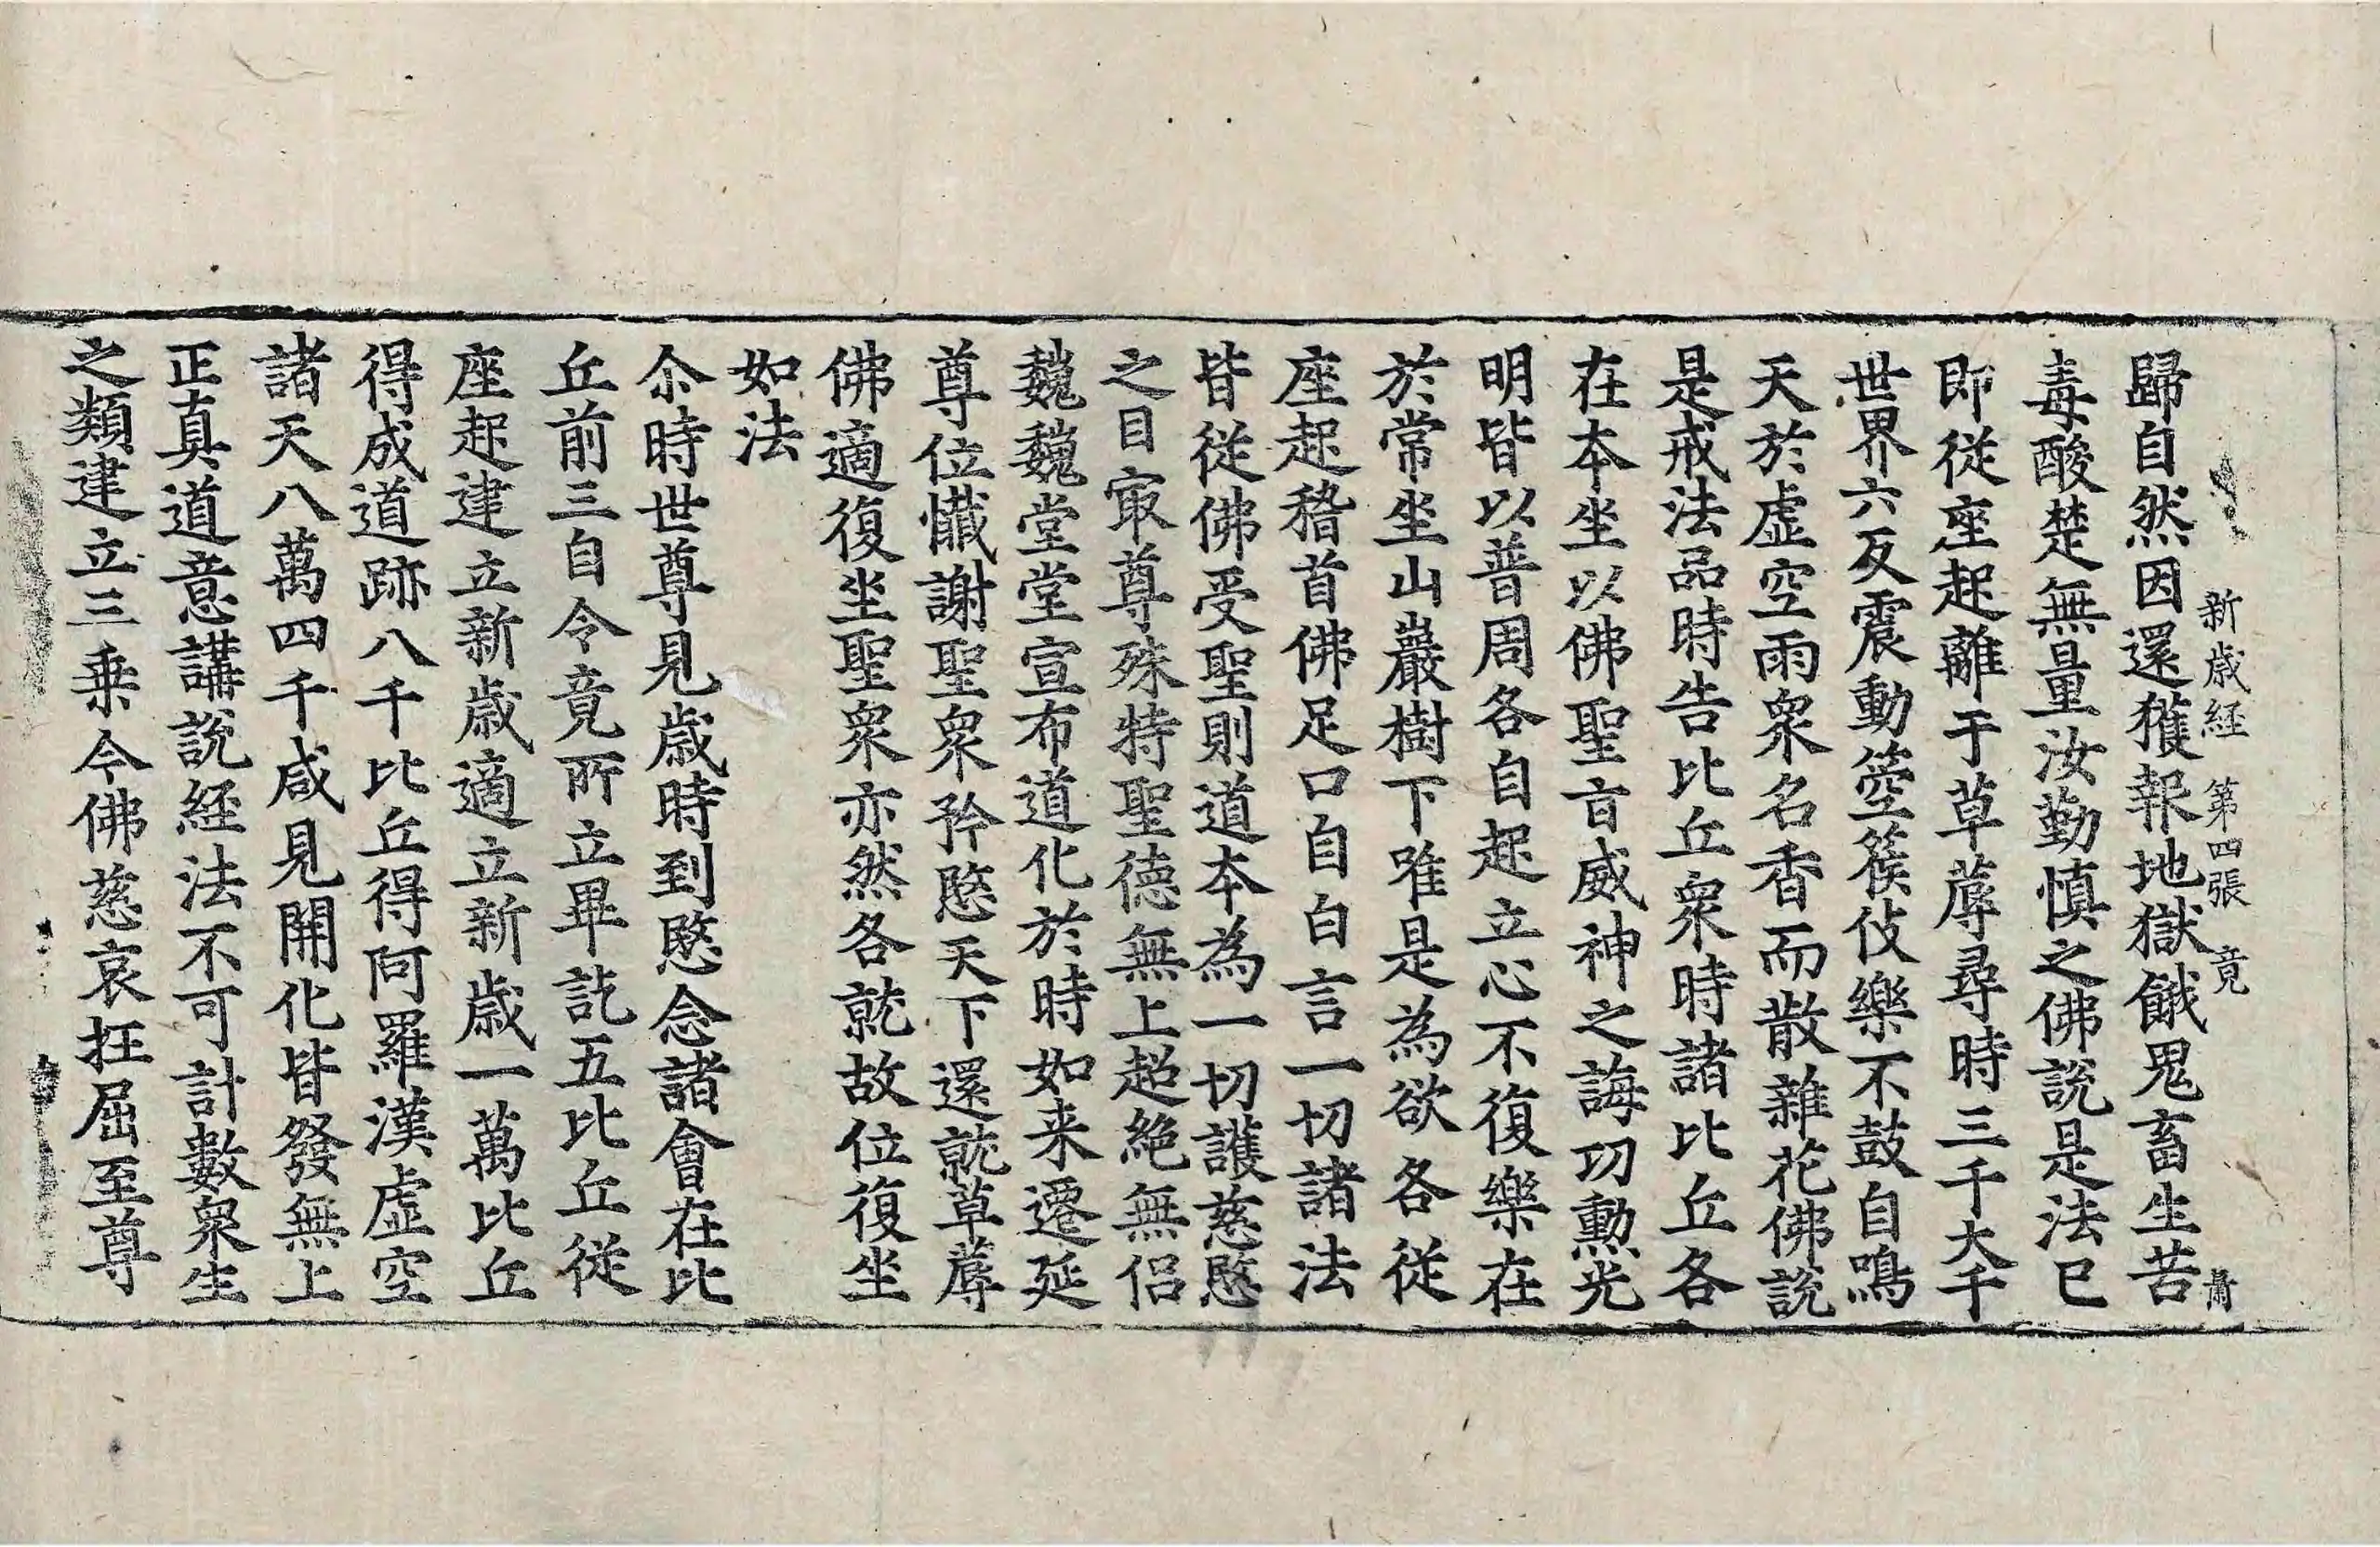 新歲経 第四張 竟
歸自然因還獲報地獄餓鬼畜生苦
毒酸楚無量汝勤慎之佛說是法已
即從座起離于草蓐尋時三千大千
世界六反震動箜篌伎樂不鼓自鳴
天於虛空雨衆名香而散雜花佛說
是戒法品時告比丘衆時諸比丘各
在本坐以佛聖旨威神之誨功勳光
明皆以普周各自起立心不復樂在
於常坐山巖樹下唯是為欲各從
座起稽首佛足口自白言一切諸法
皆從佛受聖則道本為一切護慈愍
之目㝡尊殊特聖德無上超絕無侶
巍巍堂堂宣布道化於時如来遷延
尊位懺謝聖衆矜愍天下還就草蓐
佛適復坐聖衆亦然各就故位復坐
如法
尒時世尊見歲時到愍念諸會在比
丘前三自令竟所立畢訖五比丘從
座起建立新歲適立新歲一萬比丘
得成道跡八千比丘得阿羅漢虛空
諸天八萬四千咸見開化皆發無上
正真道意講說経法不可計數衆生
之類建立三乗令佛慈哀抂屈至尊